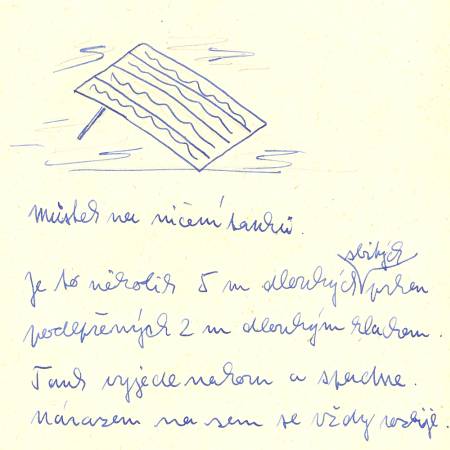 můstek na ničení tanků.
sbitých
Je to několik 5 m dlouhých prken
podepřených 2 m dlouhým klackem.
Tank vyjede nahoru a spadne.
Nárazem na zem se vždy rozbije.